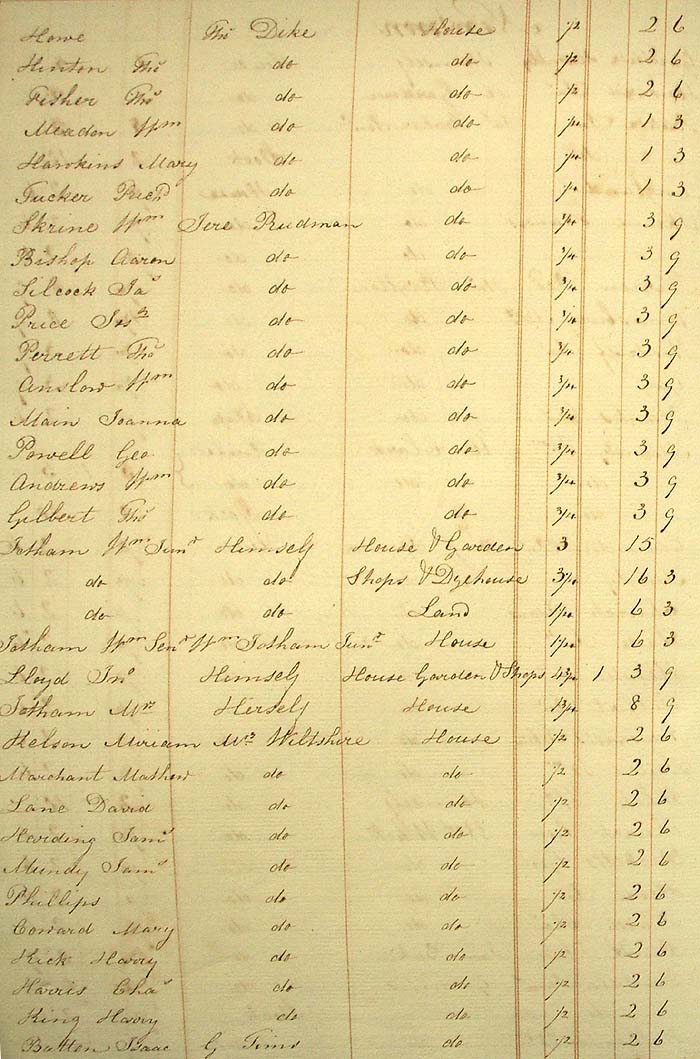 Howe Thos Dike House 1/2 2 6
Hinton Thos do do 1/2 2 6
Fisher Thos do do 1/2 2 6
Meadon Wm do do 1/4 1 3
Hawkins Mary do do 1/4 1 3
Tucker Richd do do 1/4 1 3
Skrine Wm Jere Rudman do 3/4 3 9
Bishop Aaron do do 3/4 3 9
Silcock Jas do do 3/4 3 9
Price do do 3/4 3 9
Perrett Thos do do 3/4 3 9
Anslow Wm do do 3/4 3 9
Main Joanna do do 3/4 3 9
Powell Geo do do 3/4 3 9
Andrews Wm do do 3/4 3 9
Gilbert Thos do do 3/4 3 9
Jotham Wm Junr Himself House & Garden 3 15
do do Shops & Dyehouse 3 1/4 16 3
do do Land 1 1/4 6 3
Jotham Wm Senr Wm Jotham Junr House 1 1/4 6 3
Lloyd Jno Himself House Garden & Shops 4 3/4 1 3 9
Jotham Mrs Herself House 1 3/4 8 9
Kelson Miriam Mrs Wiltshire House 1/2 2 6
Marchant Mathew do do 1/2 2 6
Lane David do do 1/2 2 6
Harding Saml do do 1/2 2 6
Mundy Saml do do 1/2 2 6
Phillips do do 1/2 2 6
Coward Mary do do 1/2 2 6
Kick Harry do do 1/2 2 6
Harris Chas do do 1/2 2 6
King Harry do do 1/2 2 6
Button Isaac G Tims do 1/2 2 6